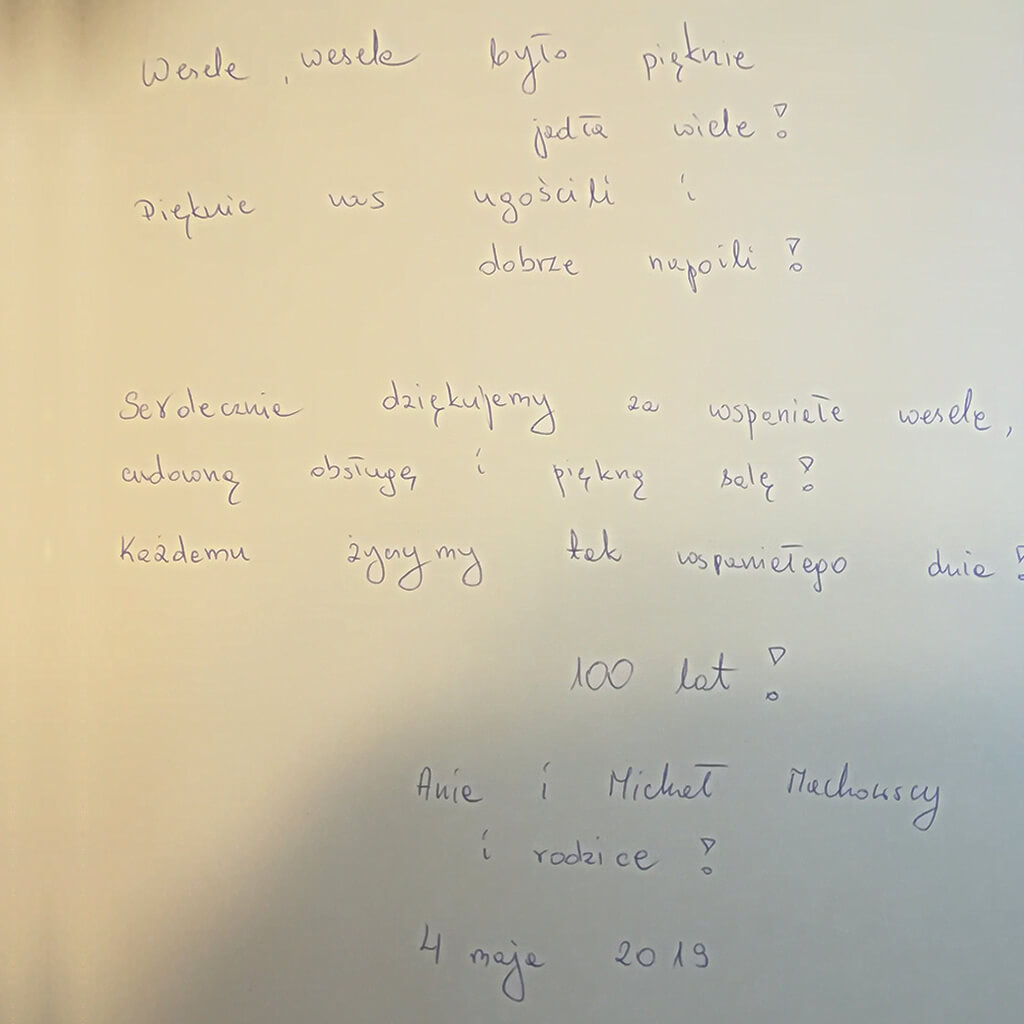 Wesele, wesele było pięknie
jadła wiele!
Pięknie nas ugościli i
dobrze napoili!
Serdecznie dziękujemy za wspaniałe wesele,
cudowną obsługę i piękną salę!
Każdemu życzymy tak wspaniałego dnia!
100 lat!
Ania i Michał Machowscy
i rodzice!
4 maja 2019